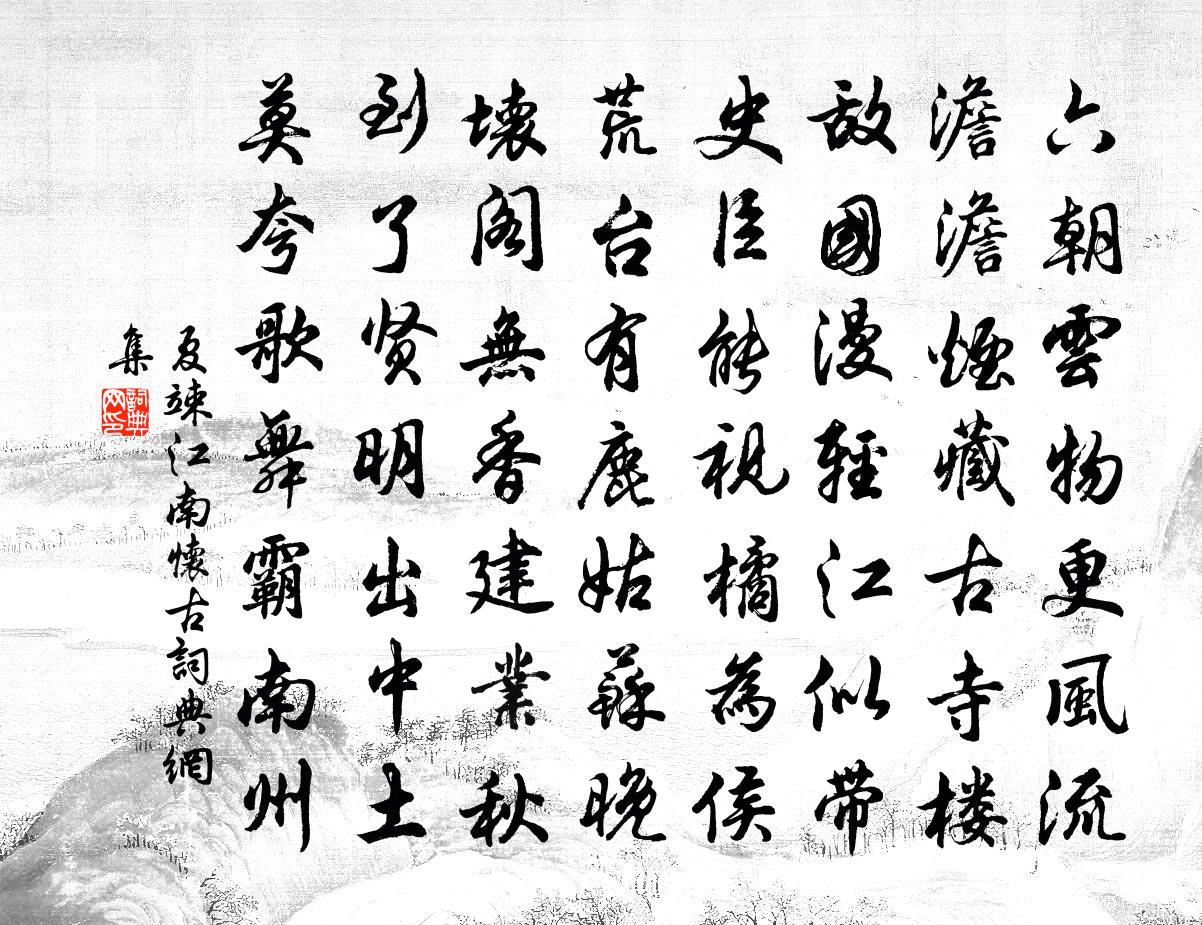 六朝雲物更風流
澹澹煙藏古寺楼
敌國漫輕江似带
史臣能視橘為侯
荒台有鹿姑蘇晚
壞阁無香建業秋
到了贤明出中土
莫夸歌舞霸南州
夏竦江南懷古詞典網
集
詞典
网印